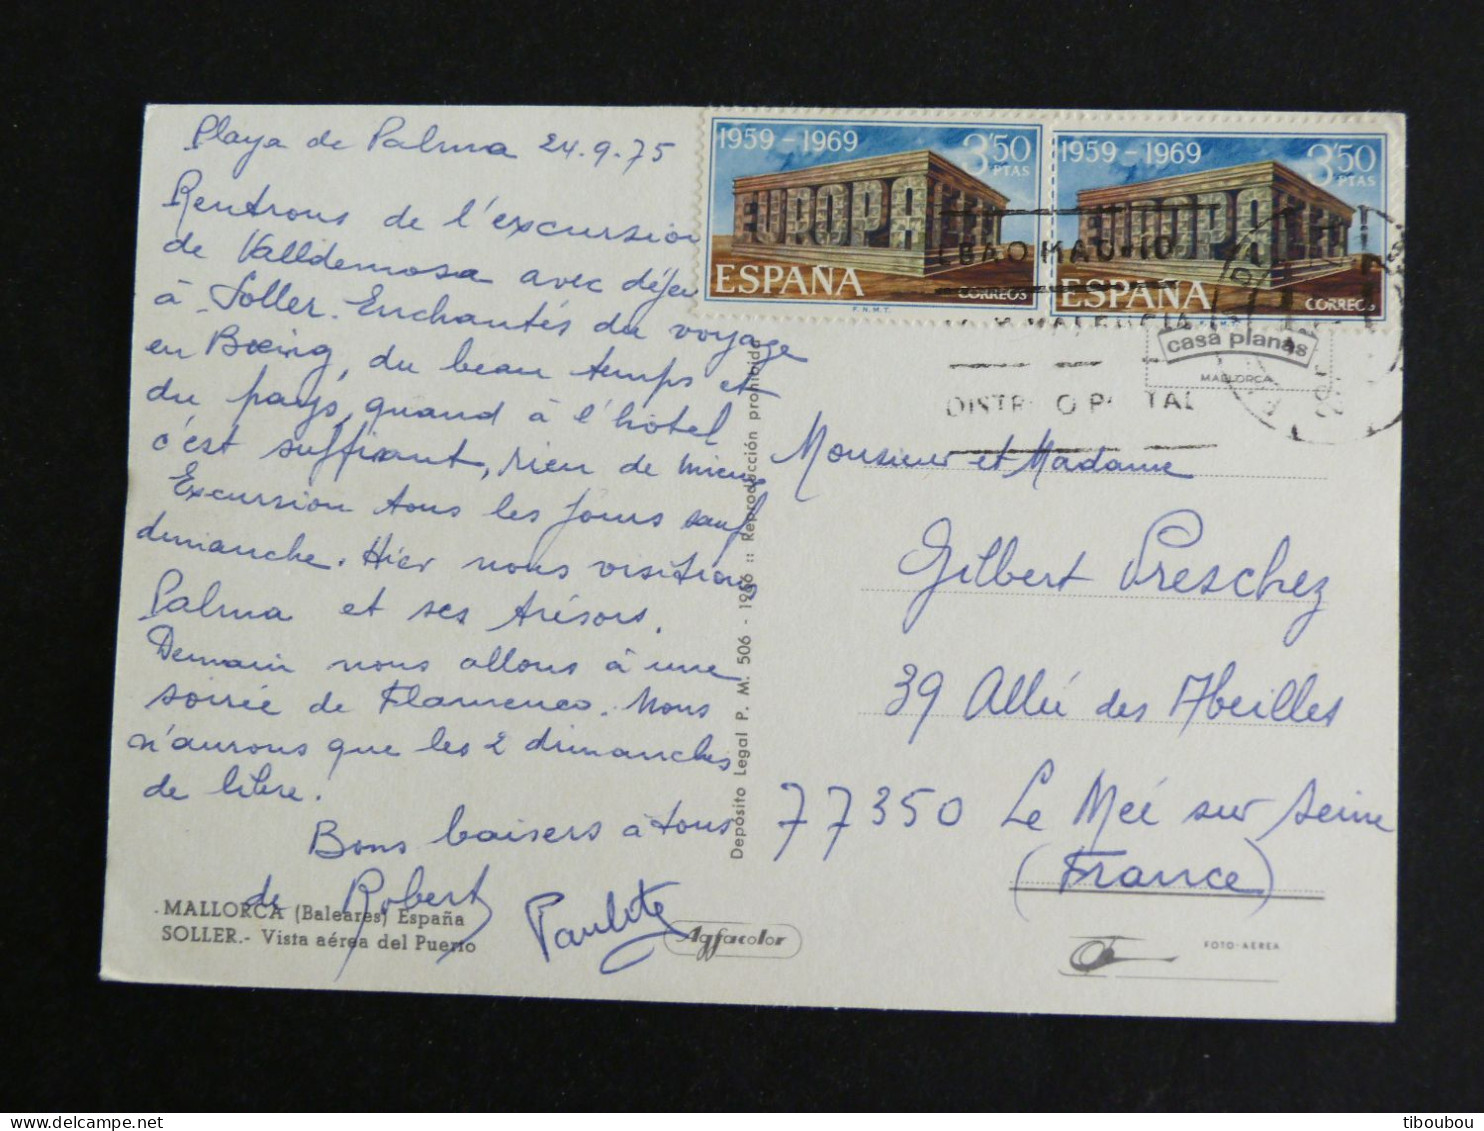 Playa de Palma 24.9.75
Rentrons de l'excursion
de Valldemosa avec déjeu
à Soller. Enchantés du voyage
en Boeing, du beau temps et
du pays, quand à l'hôtel
c'est suffisant, rien de mieux
Excursion tous les jours sauf
dimanche. Hier nous visitions
Palma et ses trésors.
Demain nous allons à une
soirée de Flamenco. Nous
n'aurons que les 2 dimanches
de libre.
Bons baisers à tous
de Robert Paulette
MALLORCA (Baleares) España
SOLLER.- Vista aérea del Puerto
Agfacolor
Depósito Legal P. M. 506 - 1966 :: Reproducción prohibida
1959 - 1969
3'50
PTAS
EUROPA CEPT
ESPAÑA
CORREOS
F.N.M.T.
1959 - 1969
3'50
PTAS
EUROPA CEPT
ESPAÑA
CORREOS
BAO MADRID
VALENCIA
DISTRITO POSTAL
casa planas
MALLORCA
Monsieur et Madame
Gilbert Preschez
39 Allée des Abeilles
77350 Le Mée sur Seine
(France)
FOTO-AEREA
tiboubou